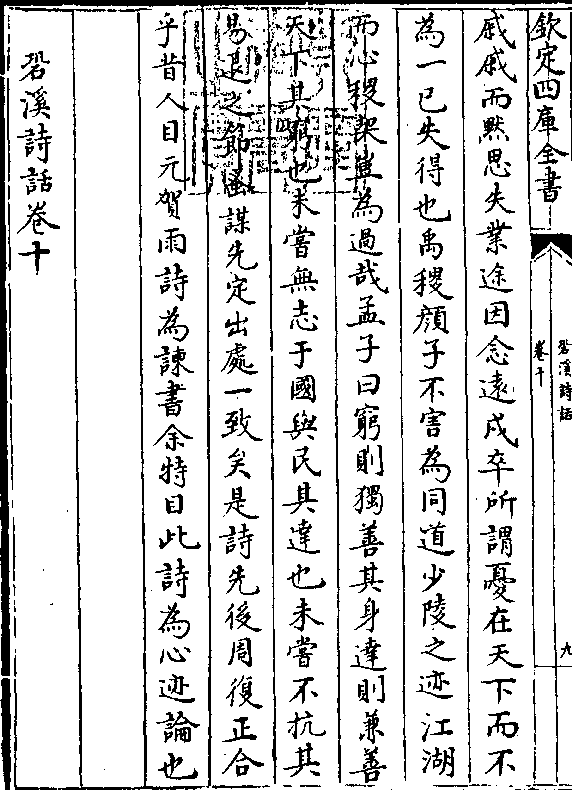 欽定四庫全書
䂬溪詩話
卷十
九
戚戚而黙思失業途因念遠戍卒所謂憂在天下而不
為一己失得也禹稷顔子不害為同道少陵之迹江湖
而心稷契豈為過哉孟子曰窮則獨善其身達則兼善
天下其窮也未嘗無志于國與民其達也未嘗不抗其
易退之節蚤謀先定出處一致矣是詩先後周復正合
乎昔人目元賀雨詩為諫書余特目此詩為心迹論也
䂬溪詩話卷十